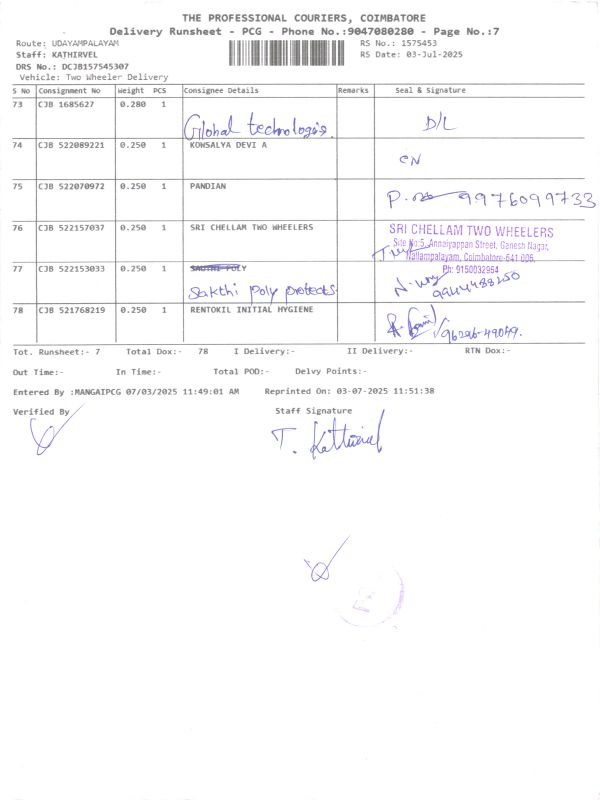 THE PROFESSIONAL COURIERS, COIMBATORE
Delivery Runsheet - PCG - Phone No.:9047080280 - Page No.:7
Route: UDAYAMPALAYAM RS No.: 1575453
Staff: KATHIRVEL RS Date: 03-Jul-2025
DRS No.: DCJB157545307
Vehicle: Two Wheeler Delivery
S No Consignment No Weight PCS Consignee Details Remarks Seal & Signature
73 CJB 1685627 0.280 1 Global technologis. D/L
74 CJB 522089221 0.250 1 KOWSALYA DEVI A CN
75 CJB 522070972 0.250 1 PANDIAN 9976099733
76 CJB 522157037 0.250 1 SRI CHELLAM TWO WHEELERS
SRI CHELLAM TWO WHEELERS
Site No:5, Annaiyappan Street, Ganesh Nagar,
Nallampalayam, Coimbatore-641 006.
Ph: 9150032964
77 CJB 522153033 0.250 1 SAKTHI POLY
Sakthi poly protects
78 CJB 521768219 0.250 1 RENTOKIL INITIAL HYGIENE 96296-49049.
Tot. Runsheet:- 7 Total Dox:- 78 I Delivery:- II Delivery:- RTN Dox:-
Out Time:- In Time:- Total POD:- Delvy Points:-
Entered By :MANGAIPCG 07/03/2025 11:49:01 AM Reprinted On: 03-07-2025 11:51:38
Verified By Staff Signature
T. Kathirvel